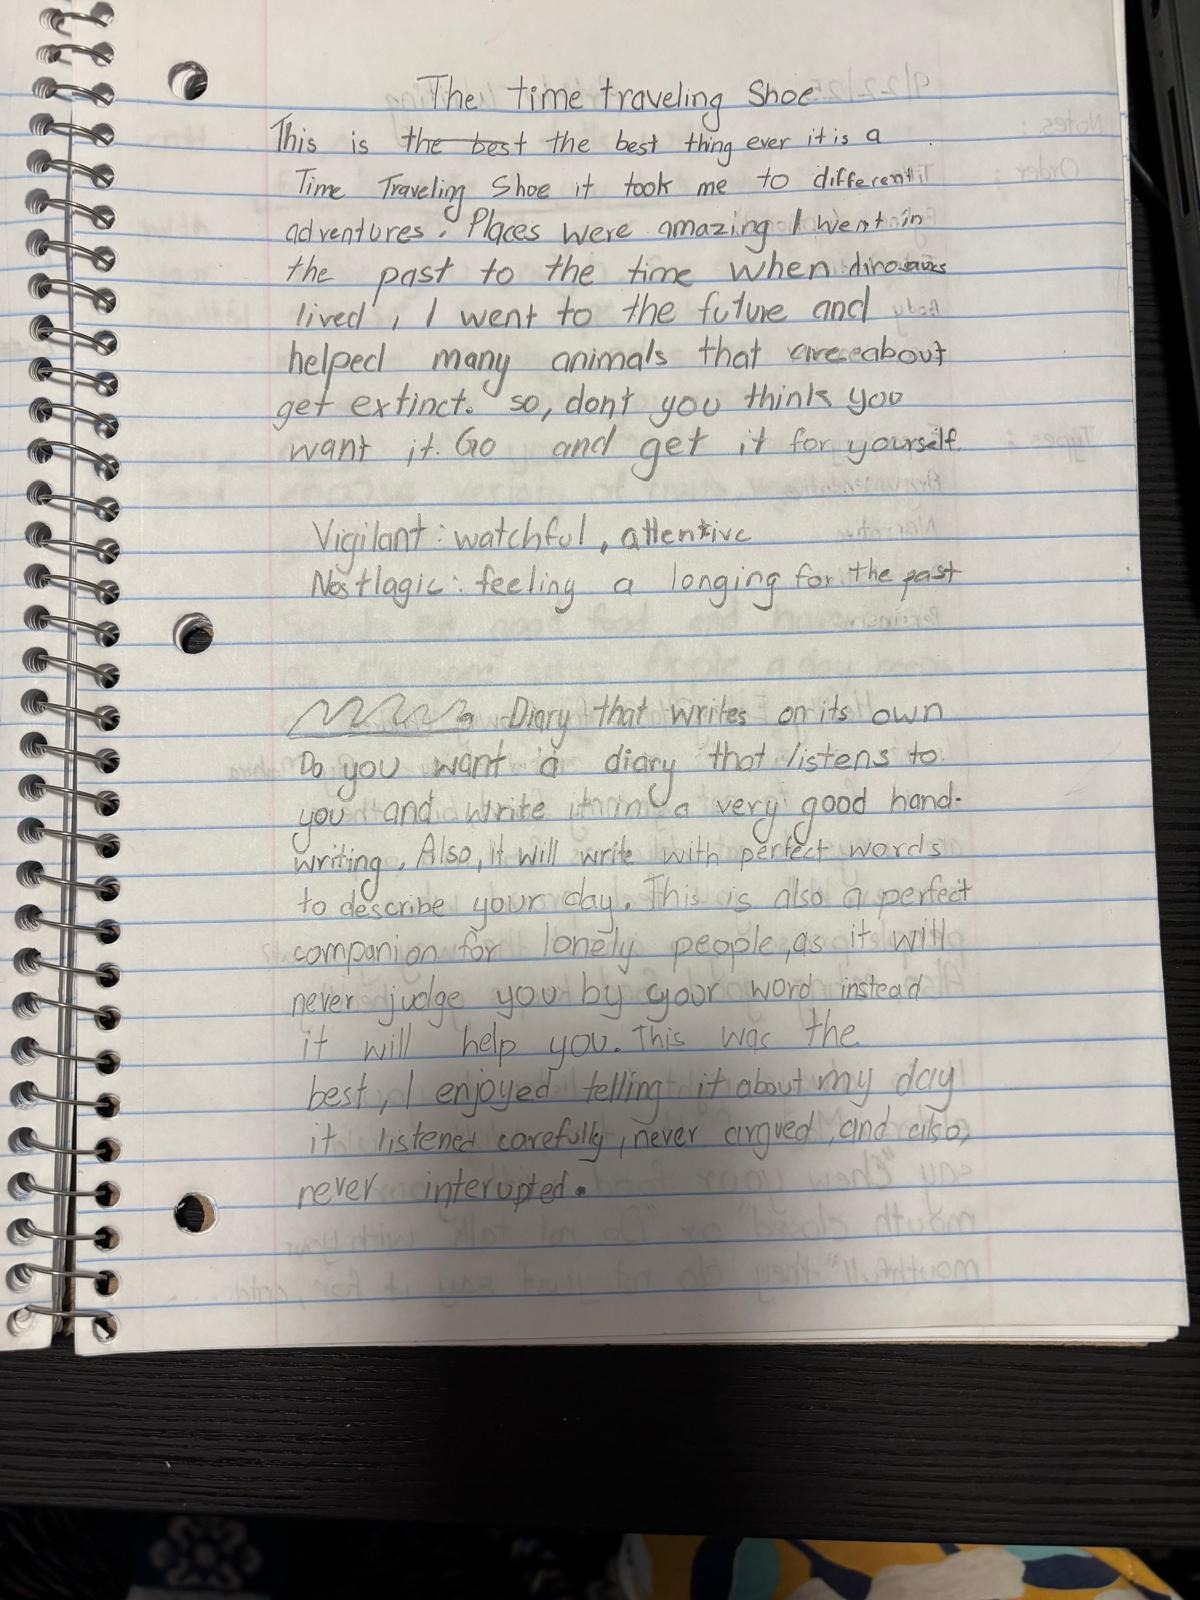 The time traveling Shoe
This is the best the best thing ever it is a
Time Traveling Shoe it took me to different
adventures. Places were amazing I went in
the past to the time when dinosaurs
lived, I went to the future and
helped many animals that are about
get extinct. so, dont you think you
want it. Go and get it for yourself.
Vigilant: watchful, attentive
Nostlagic: feeling a longing for the past
Diary that writes on its own
Do you want a diary that listens to
you and write it in a very good hand-
writing. Also, it will write with perfect words
to describe your day. This is also a perfect
companion for lonely people, as it will
never judge you by your word instead
it will help you. This was the
best, I enjoyed telling it about my day
it listened carefully, never argued, and also,
never interupted.